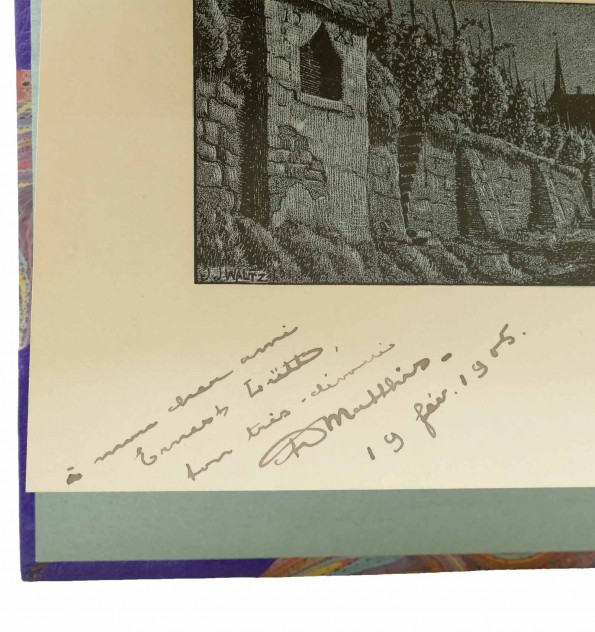 J.J.WALTZ
à mon cher ami
Ernest
ton très-dévoué
Matthis.
19 fév. 1905.